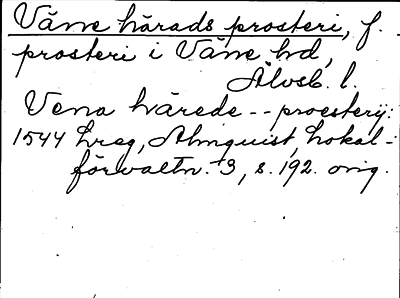 Väne härads prosteri, f.
prosteri i Väne hd,
Älvsb. l.
Vena härede -- proestery:
1544 hreg, Almquist, Lokal-
förvaltn. 3, s. 192. orig.